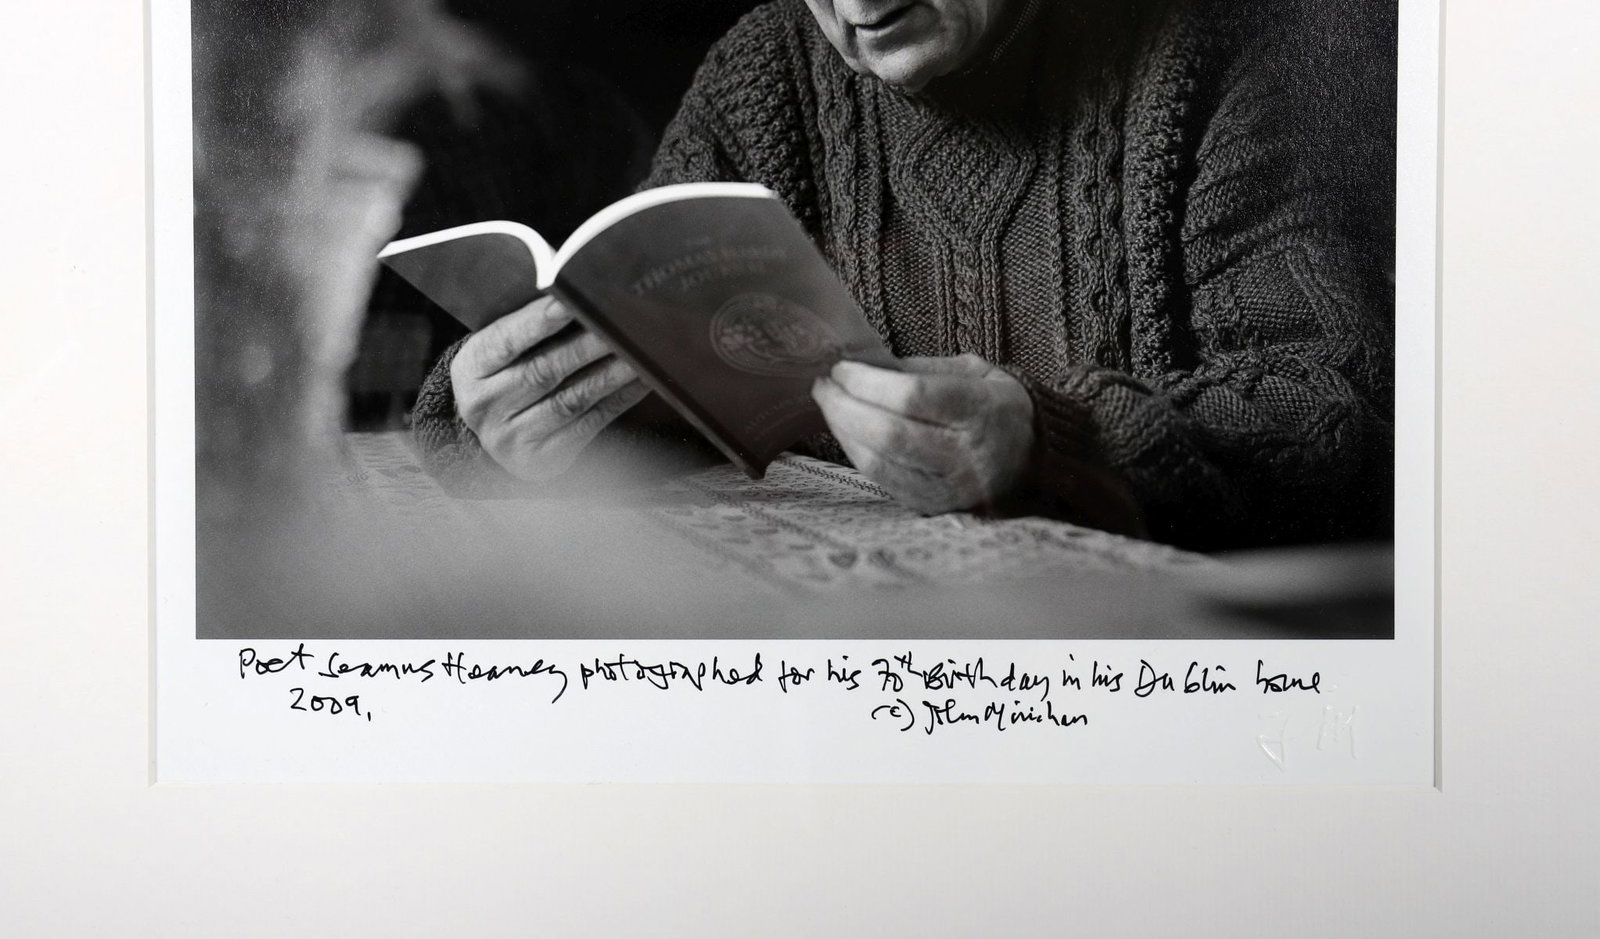 THE
THOMAS HARDY
JOURNAL
Poet Seamus Heaney photographed for his 70th Birthday in his Dublin home
2009.
(c) John Minihan
J M